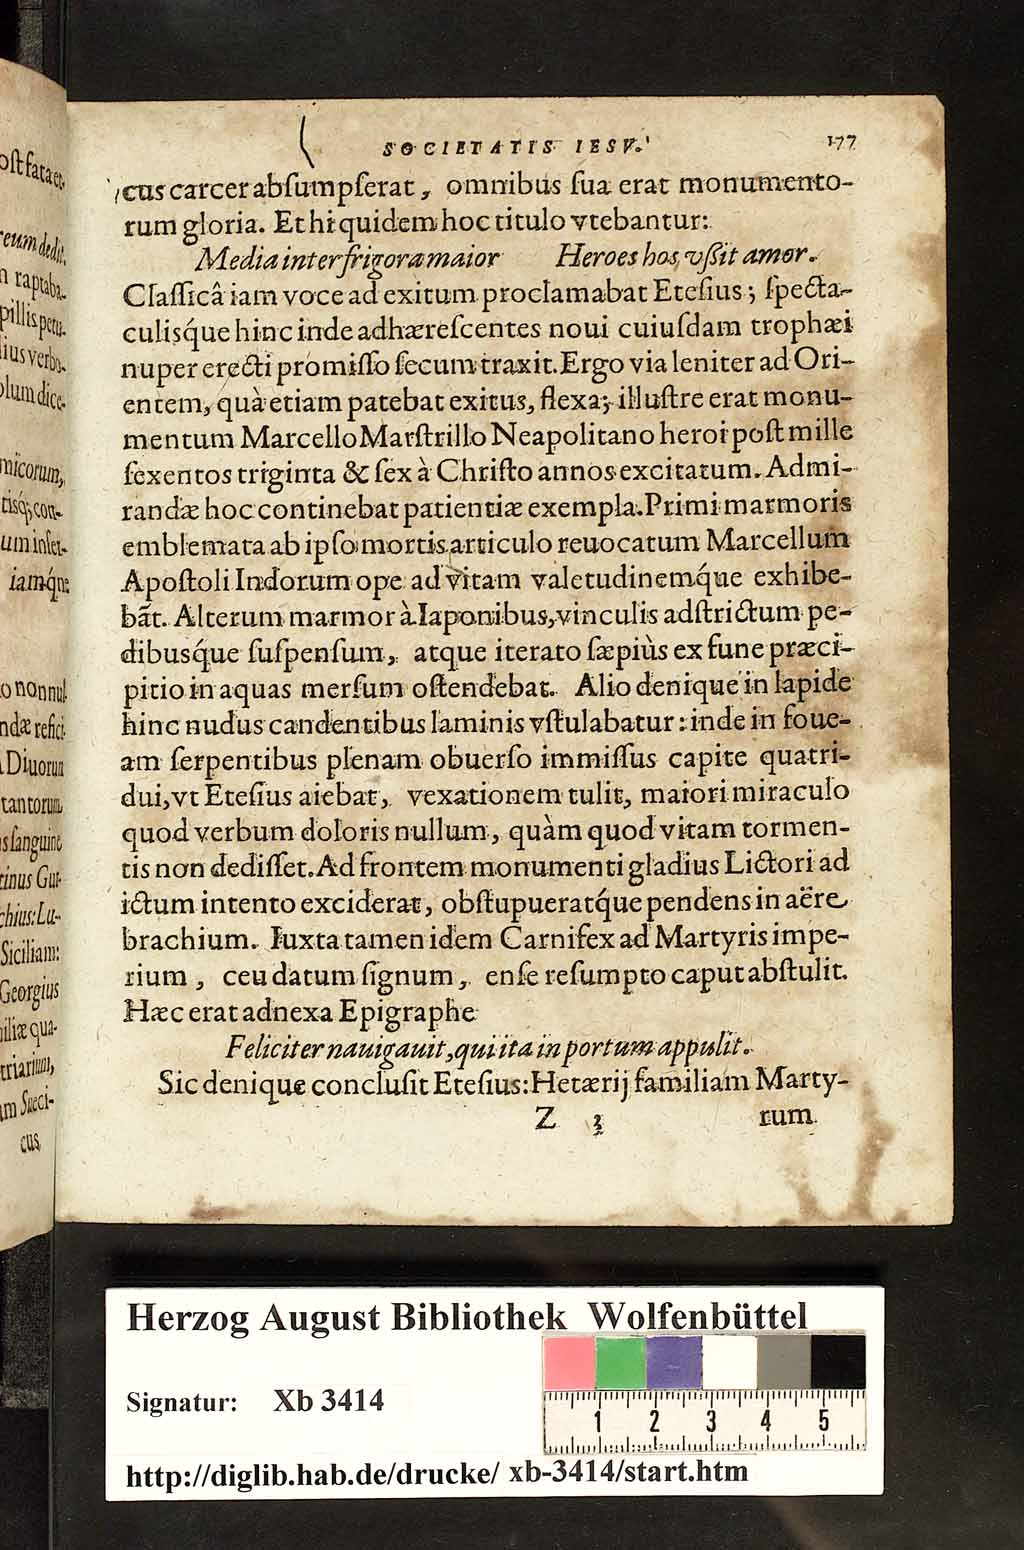 ost fata et.
reum dedit.
n raptaba-
pillis petu-
lius verbo-
olum dice-
micorum,
tisq́; con-
um inser-
iamq́ue
o nonnul
ndæ refici
Diuorum
tantorum
s sanguine
tinus Gut-
chius: Lu-
Siciliam:
Georgius
iliæ qua-
triarium,
m Sueci-
cus
SOCIETATIS IESV. 177
cus carcer absumpserat, omnibus sua erat monumento-
rum gloria. Et hi quidem hoc titulo vtebantur:
Media inter frigora maior Heroes hos vßit amor.
Classicâ iam voce ad exitum proclamabat Etesius; specta-
culisq́ue hinc inde adhærescentes noui cuiusdam trophæi
nuper erecti promisso secum traxit. Ergo via leniter ad Ori-
entem, quà etiam patebat exitus, flexa; illustre erat monu-
mentum Marcello Mastrillo Neapolitano heroi post mille
sexentos triginta & sex à Christo annos excitatum. Admi-
randæ hoc continebat patientiæ exempla. Primi marmoris
emblemata ab ipso mortis articulo reuocatum Marcellum
Apostoli Indorum ope ad vitam valetudinemq́ue exhibe-
bãt. Alterum marmor à Iaponibus, vinculis adstrictum pe-
dibusq́ue suspensum, atque iterato sæpiùs ex fune præci-
pitio in aquas mersum ostendebat. Alio denique in lapide
hinc nudus candentibus laminis vstulabatur: inde in foue-
am serpentibus plenam obuerso immissus capite quatri-
dui, vt Etesius aiebat, vexationem tulit, maiori miraculo
quod verbum doloris nullum, quàm quod vitam tormen-
tis non dedisset. Ad frontem monumenti gladius Lictori ad
ictum intento exciderat, obstupueratq́ue pendens in aëre
brachium. Iuxta tamen idem Carnifex ad Martyris impe-
rium, ceu datum signum, ense resumpto caput abstulit.
Hæc erat adnexa Epigraphe
Feliciter nauigauit, qui ita in portum appulit.
Sic denique conclusit Etesius: Hetærij familiam Marty-
Z 3 rum
Herzog August Bibliothek Wolfenbüttel
Signatur: Xb 3414
1 2 3 4 5
http://diglib.hab.de/drucke/ xb-3414/start.htm